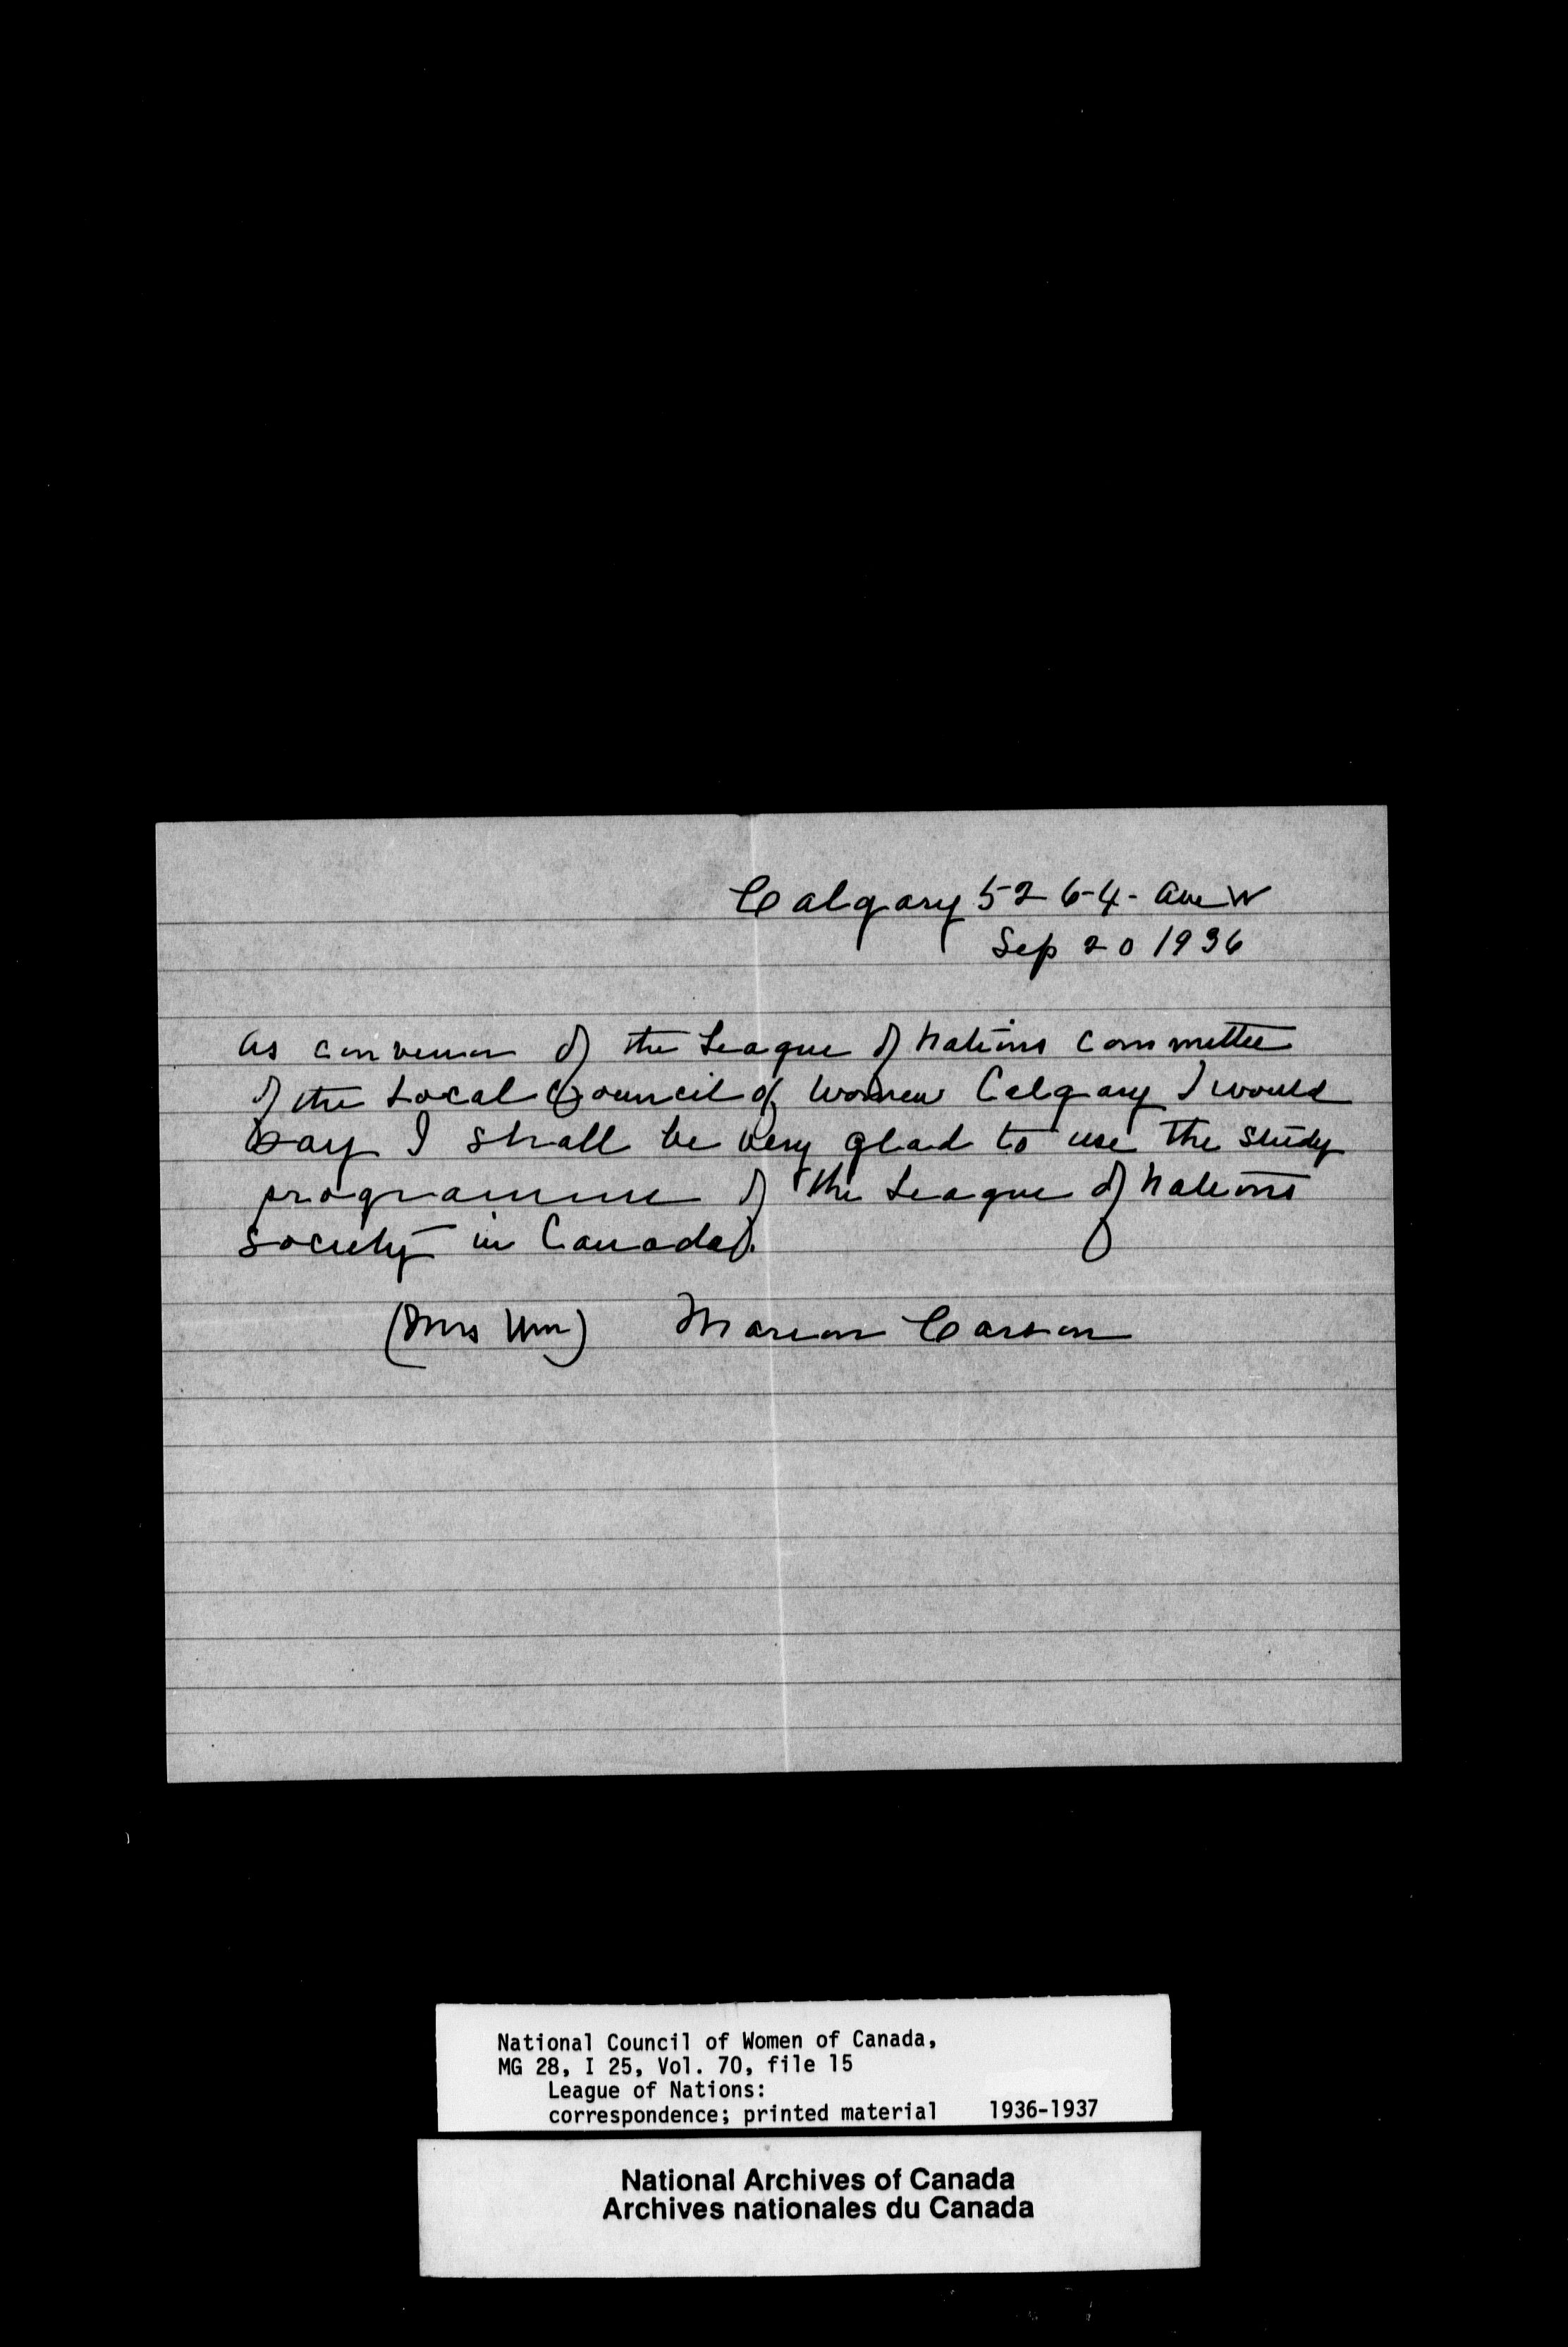 Calgary 526-4- Ave W
Sep 20 1936
As convenor of the League of Nations committee
of the Local Council of Women Calgary I would
say I shall be very glad to use the study
programme of the League of Nations
society in Canada.
(Mrs Wm) Marion Carson
National Council of Women of Canada,
MG 28, I 25, Vol. 70, file 15
League of Nations:
correspondence; printed material 1936-1937
National Archives of Canada
Archives nationales du Canada